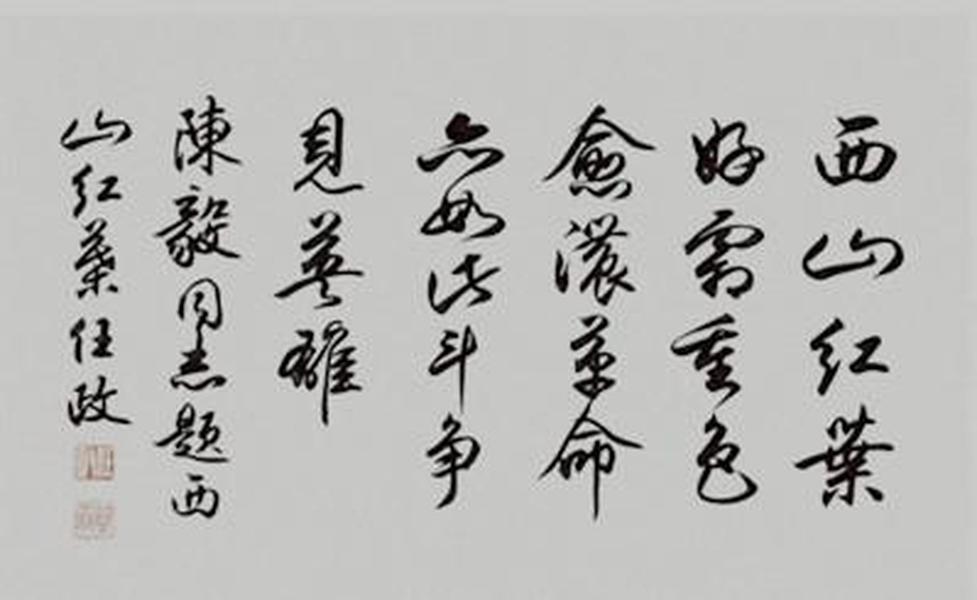 西山红葉
好霜重色
愈濃革命
亦如此斗争
見英雄
陳毅同志題西
山红葉任政